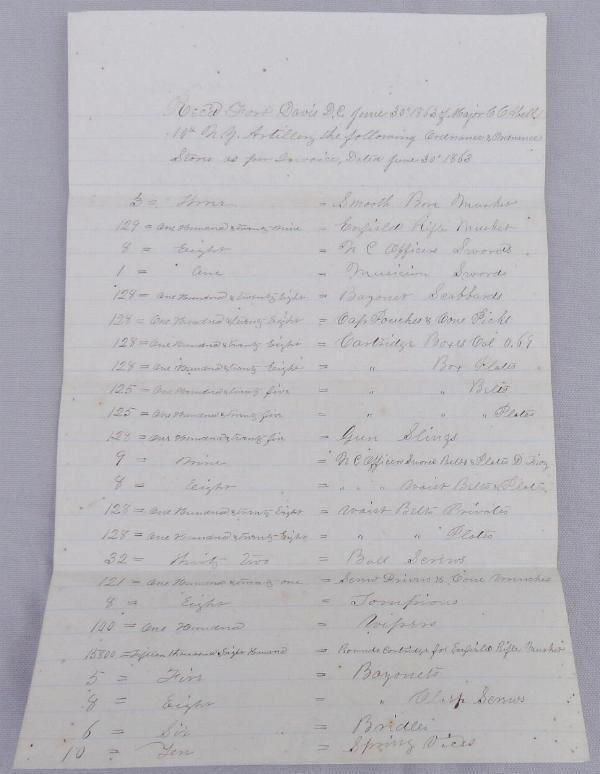 Recd Fort Davis D.C. June 30th 1863 of Major
10th N.Y. Artillery the following Ordnance & Ordnance
Stores as per Invoice, Dated June 30th 1863
= Smooth Bore Musket
129 = One Hundred & twenty nine = Enfield Rifle Musket
8 = Eight = N C Officers Swords
1 = One = Musician Swords
128 = One Hundred & twenty Eight = Bayonet Scabbards
128 = One Hundred & twenty Eight = Cap Pouches & Cone Picks
128 = One Hundred & twenty Eight = Cartridge Boxes Cal 0.69
128 = One Hundred & twenty Eight = " Box Plates
125 = One Hundred & twenty five = " " Belts
125 = One Hundred & twenty five = " " " Plates
128 = One Hundred & twenty five = Gun Slings
9 = Nine = N C Officers Sword Belts & Plates
8 = Eight = " " " Waist Belts & Plates
128 = One Hundred & twenty Eight = Waist Belts Privates
128 = One Hundred & twenty Eight = " " Plates
32 = Thirty Two = Ball Screws
121 = One Hundred & twenty one = Screw Drivers & Cone Wrenches
8 = Eight = Tompions
100 = One Hundred = Wipers
15800 = Fifteen thousand Eight Hundred = Rounds Cartridge for Enfield Rifle Musket
5 = Five = Bayonets
8 = Eight = " Clasp Screws
6 = Six = Bridles
10 = Ten = Spring Vices